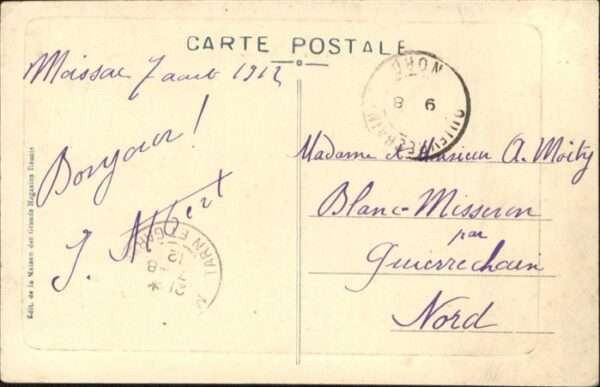 CARTE POSTALE
Moissac 7 aout 1912
Bonjour!
J. Albert
TARN ET GAR
21 *
7-8
12
NORD
9
8
QUIEVRECHAIN
Madame et Monsieur A. Moity
Blanc-Misseron
par
Quievrechain
Nord
Edit. de la Maison des Grands Magasins Réunis